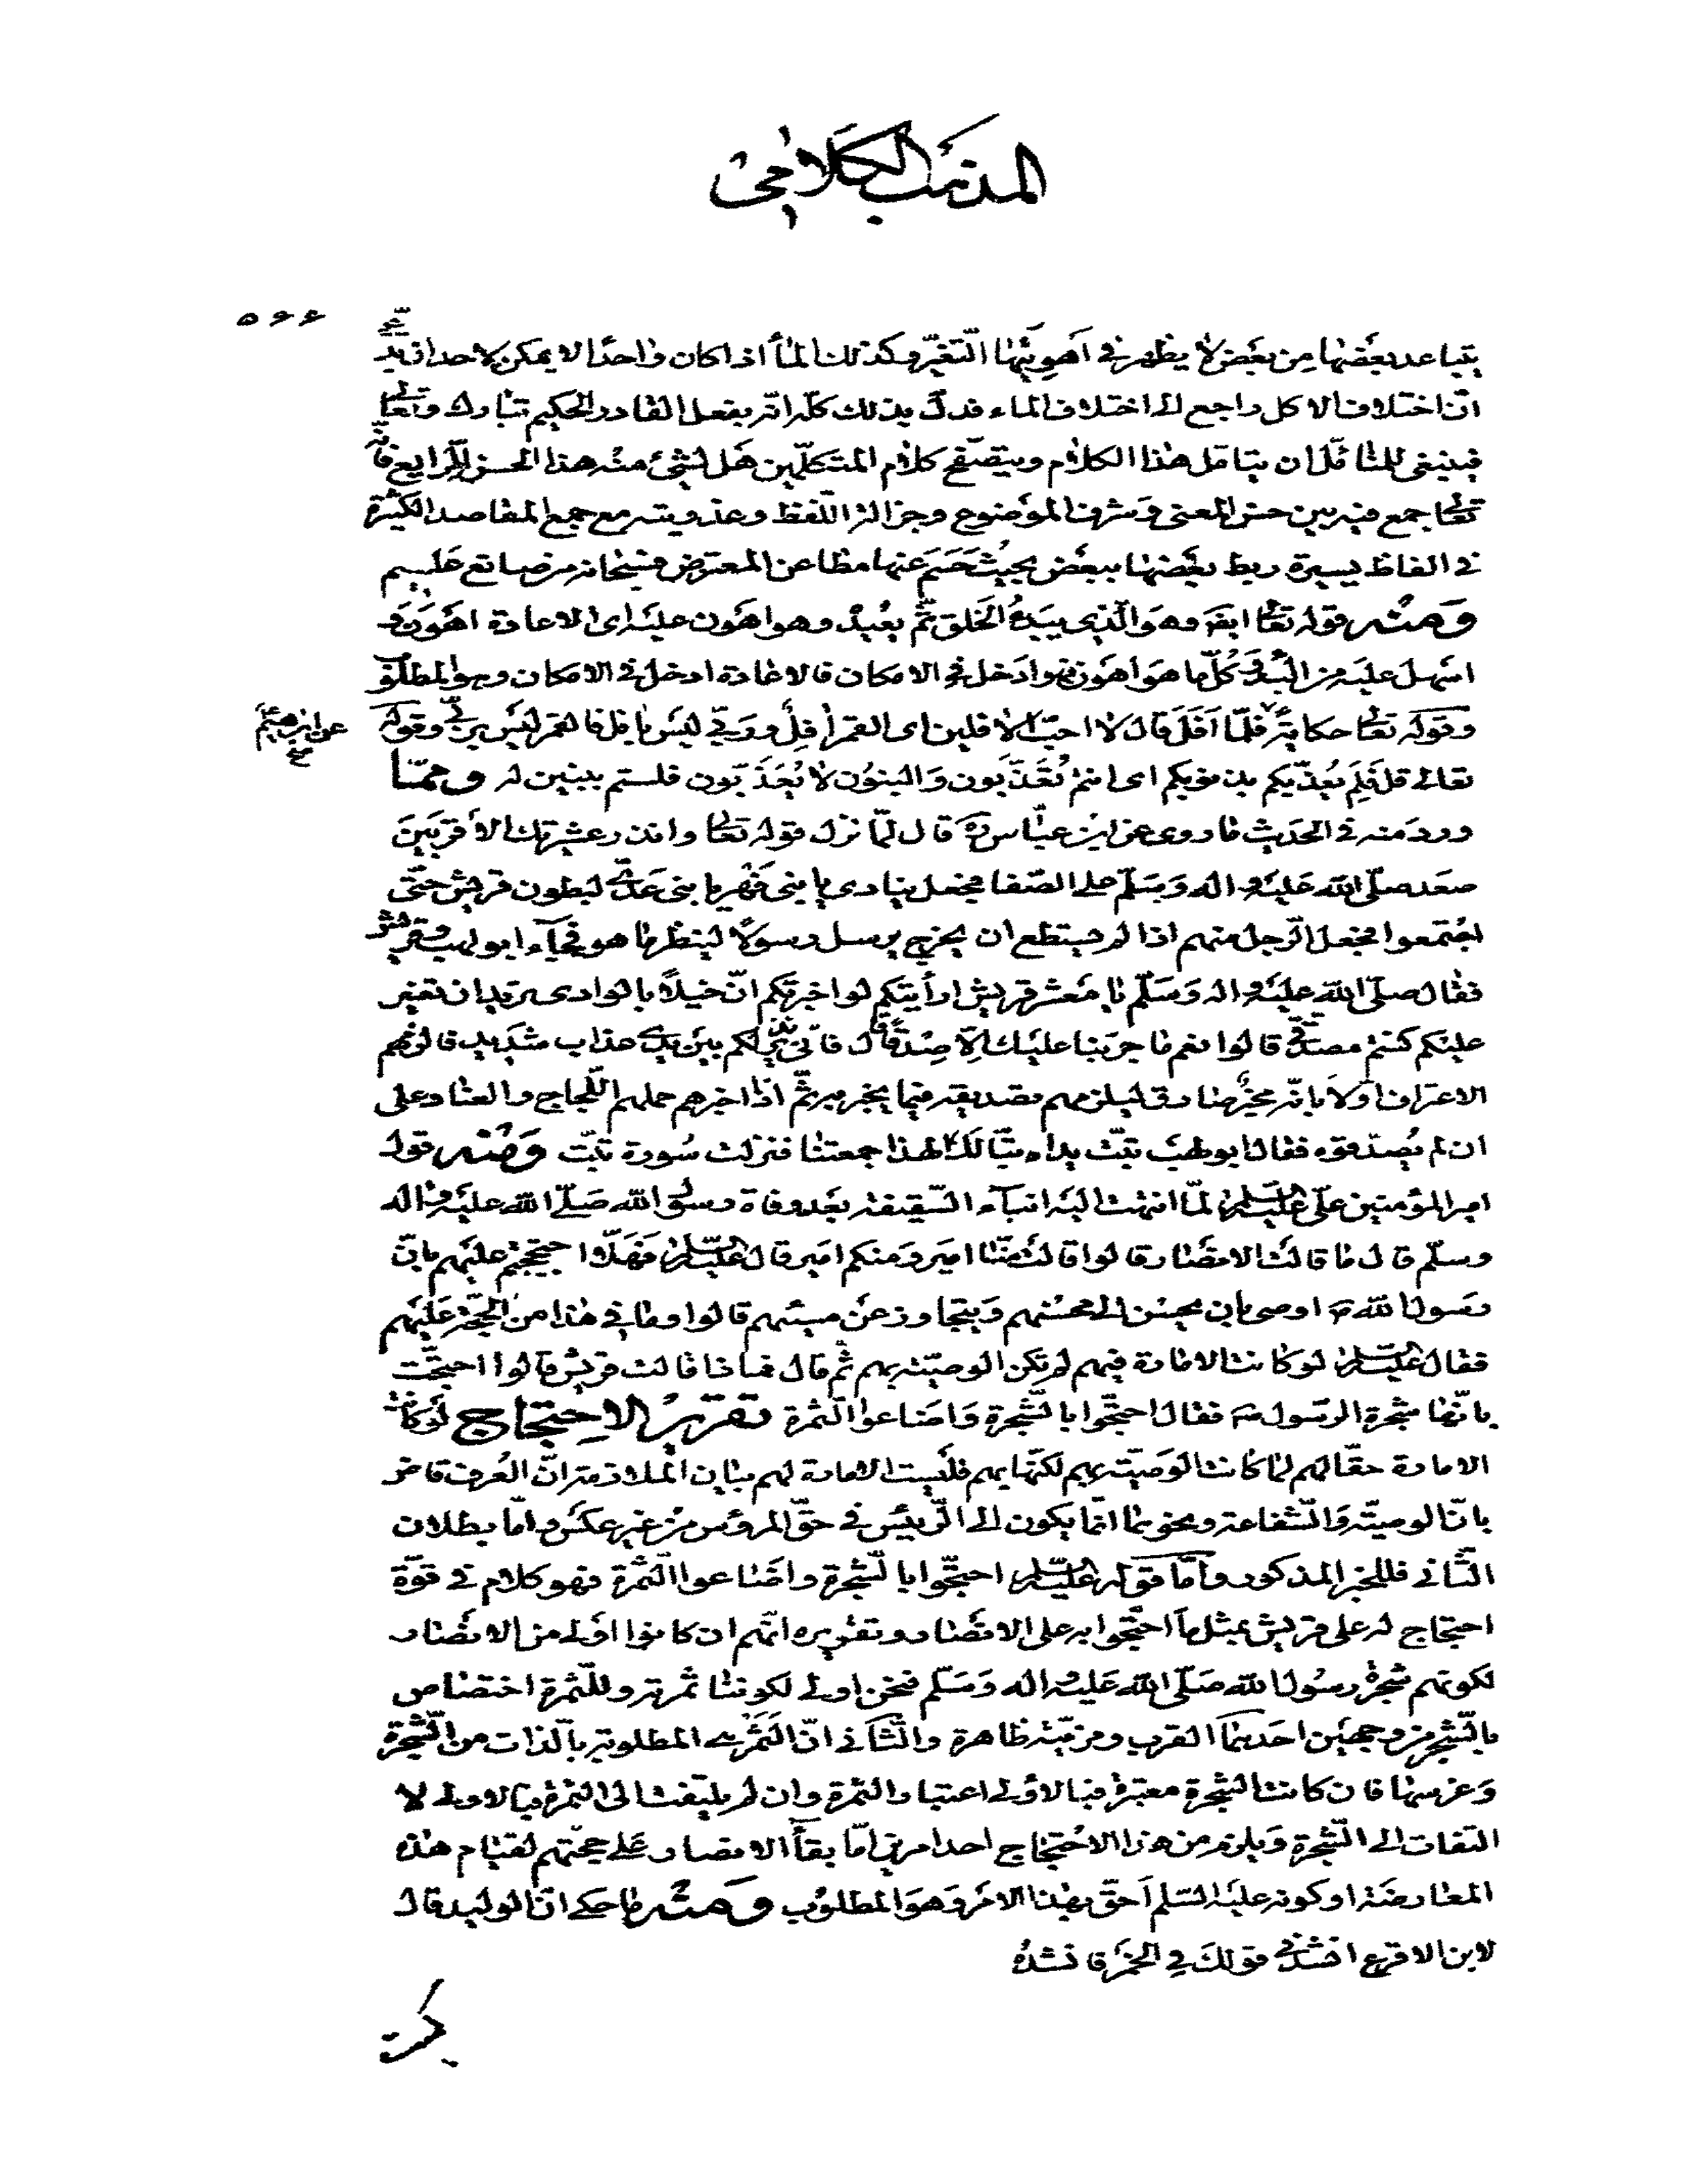 المذهب الكلامي
۵۶۶
يتباعد بعضها من بعض لا يظهر في اهويتها التغير وكذلك الماء اذا كان واحدا لا يمكن لاحد ان يدعي
ان اختلاف الاكل راجع الى اختلاف الماء فدل بذلك كله انه بفعل القادر الحكيم تبارك وتعالى
فينبغي للمتأمل ان يتامل هذا الكلام ويتصفح كلام المتكلمين هل لشيء منه هذا الحسن الرايع فانه
تعالى جمع فيه بين حسن المعنى وشرف الموضوع وجزالة اللفظ وعذوبته مع جمع المقاصد الكثيرة
في الفاظ يسيرة ربط بعضها ببعض بحيث حسم عنها مطاعن المعترض فسبحانه من صانع عليم
ومنه قوله تعالى ايضا وهو الذي يبدؤ الخلق ثم يعيده وهو اهون عليه اي الاعادة اهون و
اسهل عليه من البدو وكل ما هو اهون فهو ادخل في الامكان فالاعادة ادخل في الامكان وهو المطلوب
وقوله تعالى حكاية فلما افل قال لا احب الافلين اي القمر افل وربي ليس بافل فالقمر ليس بربي وقوله
عن ابرهيم صح
تعالى قل فلم يعذبكم بذنوبكم اي انتم تعذبون والبنون لا يعذبون فلستم ببنين له ومما
ورد منه في الحديث ما روي عن ابن عباس رض قال لما نزل قوله تعالى وانذر عشيرتك الاقربين
صعد صلى الله عليه واله وسلم على الصفا فجعل ينادي يا بني فهر يا بني عدي لبطون قريش حتى
اجتمعوا فجعل الرجل منهم اذا لم يستطع ان يخرج يرسل رسولا لينظر ما هو فجاء ابو لهب وقريش
فقال صلى الله عليه واله وسلم يا معشر قريش ارأيتكم لو اخبرتكم ان خيلا بالوادي يريد ان تغير
عليكم كنتم مصدقي قالوا نعم ما جربنا عليك الا صدقا قال فاني نذير لكم بين يدي عذاب شديد فالزمهم
الاعتراف اولا بانه مخبر صادق ليلزمهم تصديقه فيما يخبر به ثم اذا اخبرهم حملهم اللجاج والعناد على
ان لم يصدقوه فقال ابو لهب تبت يداه تبا لك الهذا جمعتنا فنزلت سورة تبت ومنه قول
امير المؤمنين علي عليه السلم لما انتهت اليه انباء السقيفة بعد وفاة رسول الله صلى الله عليه واله
وسلم قال ما قالت الانصار قالوا قالت منا امير ومنكم امير قال عليه السلم فهلا احتججتم عليهم بان
رسول الله ص اوصى بان يحسن الى محسنهم ويتجاوز عن مسيئهم قالوا وما في هذا من الحجة عليهم
فقال عليه السلم لو كانت الامامة فيهم لم تكن الوصية بهم ثم قال فماذا قالت قريش قالوا احتجت
بانها شجرة الرسول ص فقال احتجوا بالشجرة واضاعوا الثمرة تقرير الاحتجاج لو كانت
الامامة حقا لهم لما كانت الوصية بهم لكنها بهم فليست الامامة لهم بيان الملازمة ان العرف قاض
بان الوصية والشفاعة ونحوهما انما يكون الى الرييس في حق المرؤس من غير عكس واما بطلان
الثاني فللخبر المذكور واما قوله عليه السلم احتجوا بالشجرة واضاعوا الثمرة فهو كلام في قوة
احتجاج له على قريش بمثل ما احتجوا به على الانصار وتقريره انهم ان كانوا اولى من الانصار
لكونهم شجرة رسول الله صلى الله عليه واله وسلم فنحن اولى لكوننا ثمرته وللثمرة اختصاص
بالشجرة من وجهين احدهما القرب ومزيته ظاهرة والثاني ان الثمرة هي المطلوبة بالذات من الشجرة
وغرسها فان كانت الشجرة معتبرة فبالاولى اعتبار الثمرة وان لم يلتفت الى الثمرة فبالاولى لا
التفات الى الشجرة ويلزم من هذا الاحتجاج احد امرين اما بقاء الانصار على حجتهم لقيام هذه
المعارضة او كونه عليه السلم احق بهذا الامر وهو المطلوب ومنه ما حكي ان الوليد قال
لابن الاقرع انشدني قولك في الخمر فانشده